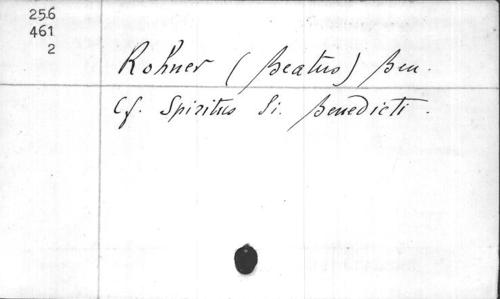 256
461
2
Rohner (Beatus) Ben.
Cf. Spiritus Si. Benedicti.